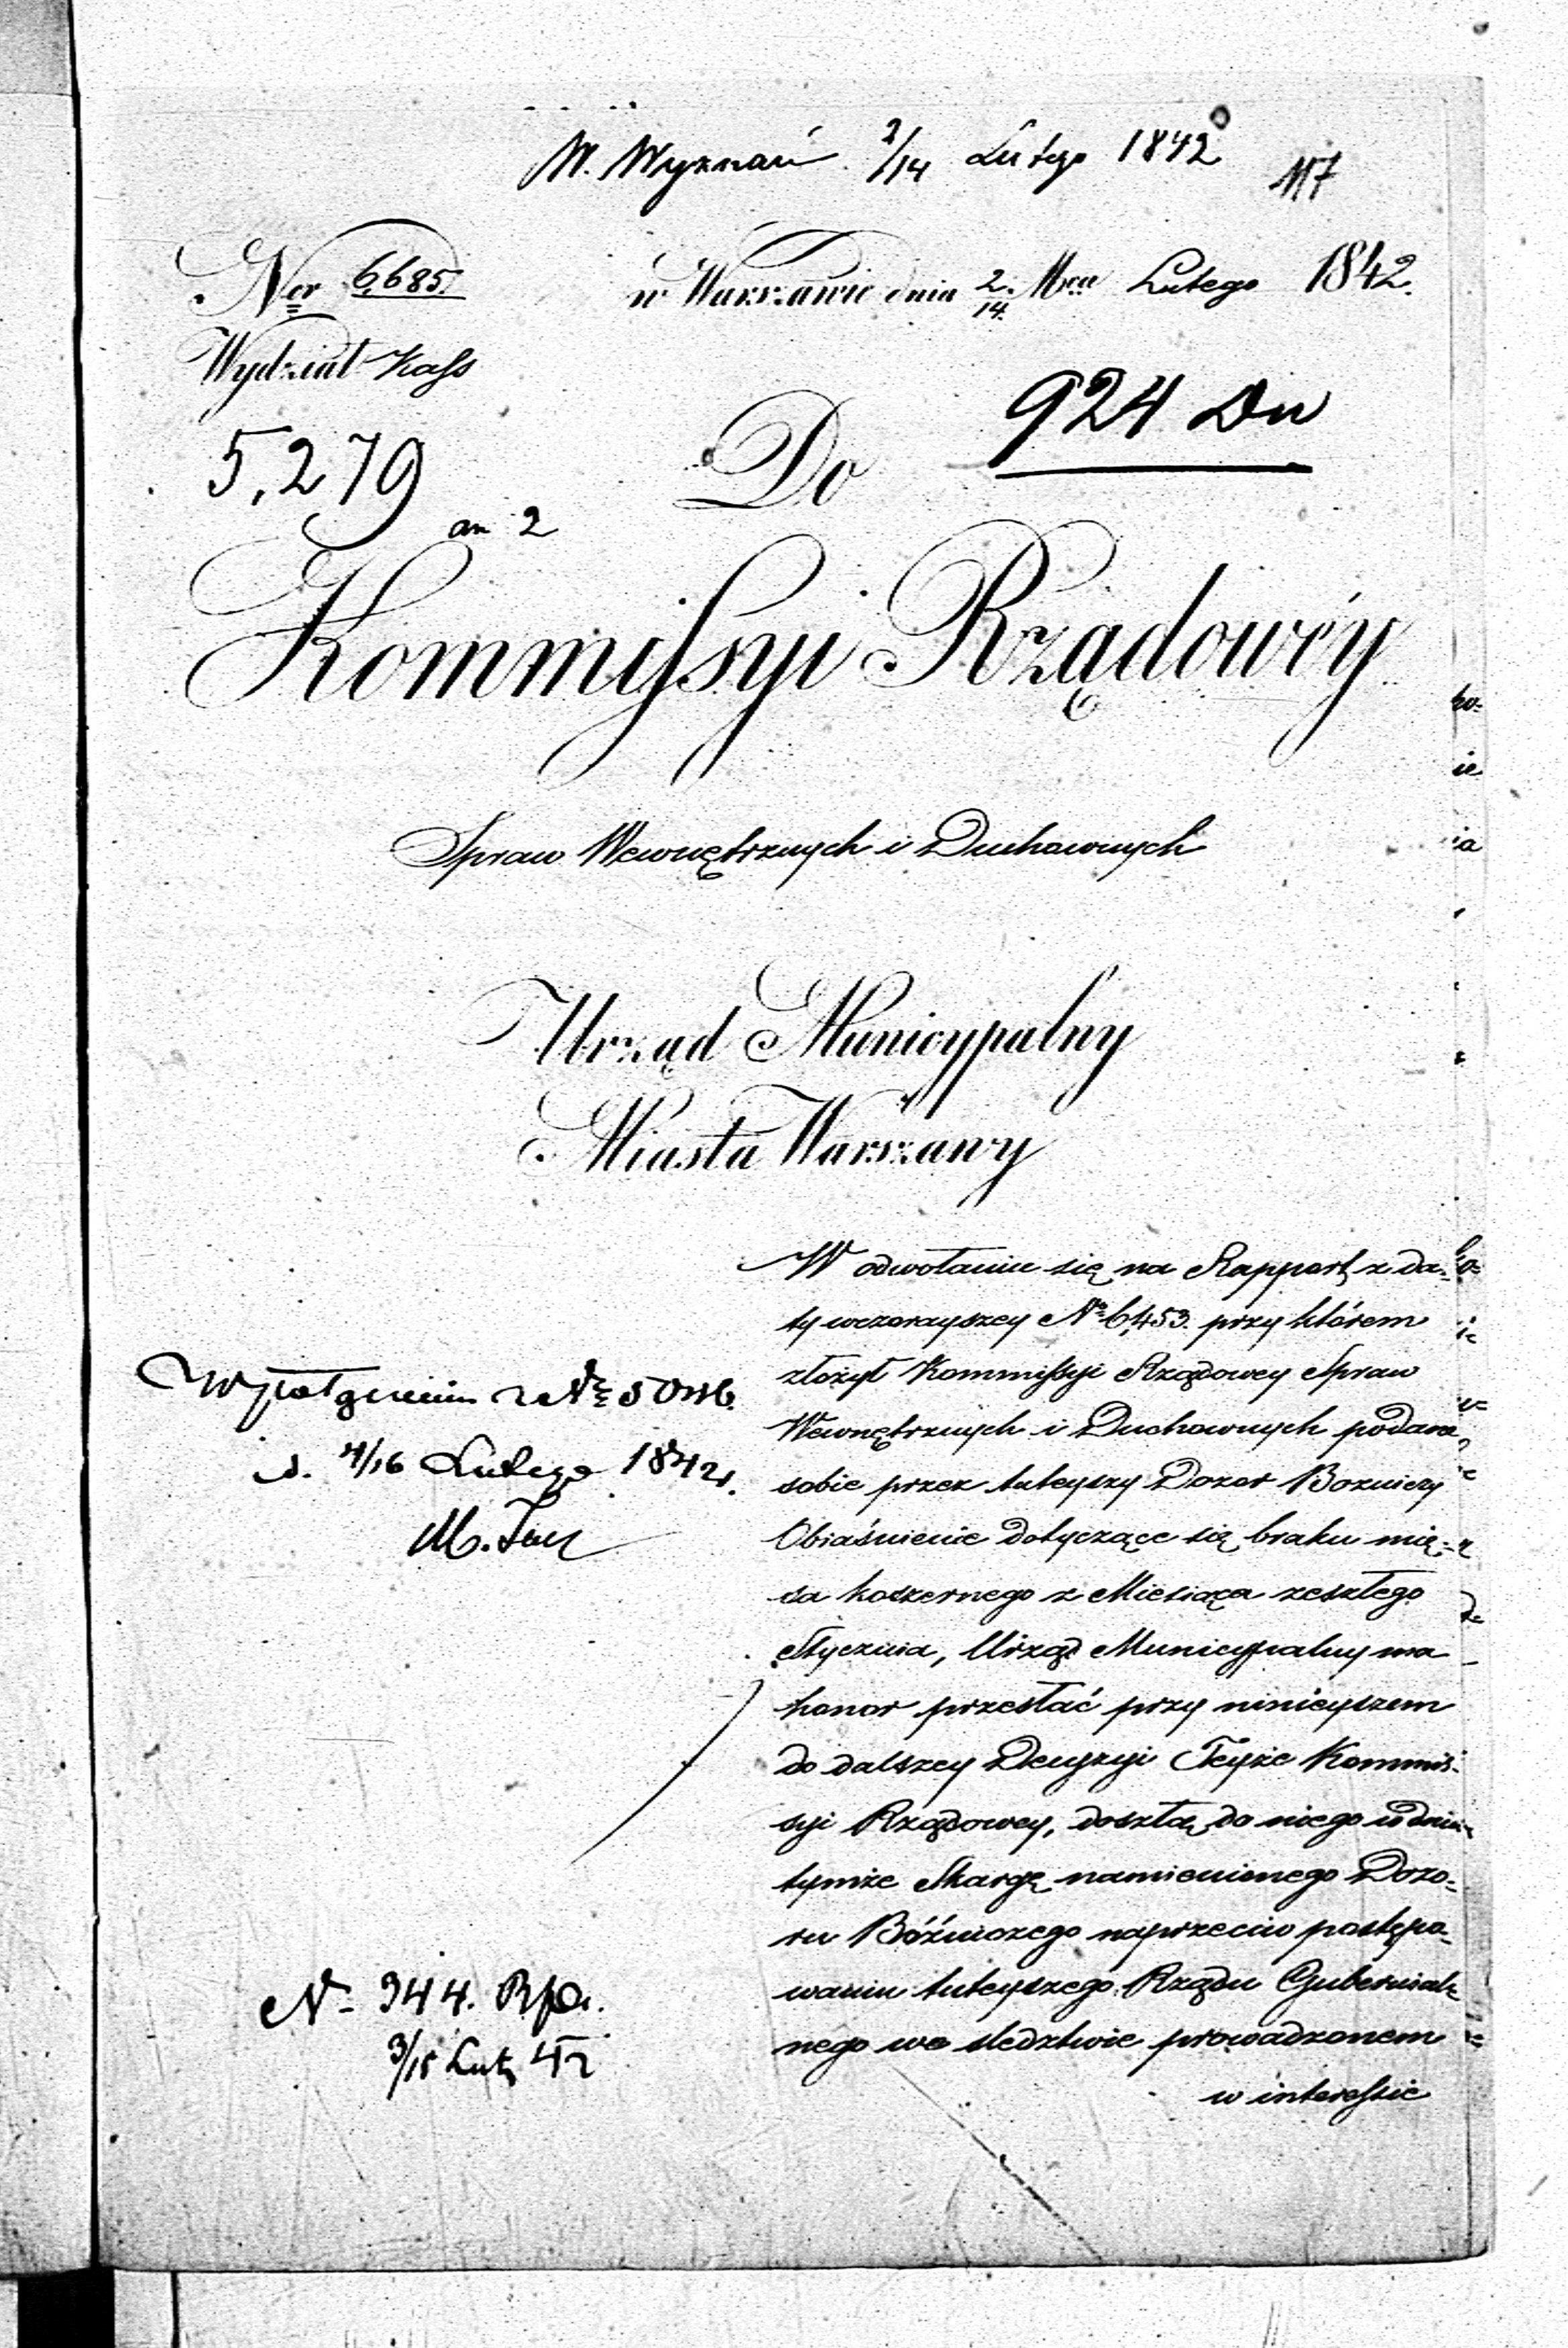 W. Wyznań 2/14 Lutego 1842
117
Ner 6,685. w Warszawie dnia 2./14. Mca Lutego 1842.
Wydział Kass
924 Dw
5,279
an 2
Do
Kommissyi Rządowéy
Spraw Wewnętrznych i Duchownych
Urząd Municypalny
Miasta Warszawy
W odwołaniu się na Rapport z da-
ty wczorayszey No 6,453. przy którem
złożył Kommissyi Rządowey Spraw
Wewnętrznych i Duchownych podane
sobie przez tuteyszy Dozor Bozniczy
Obiaśnienie dotyczące się braku mię-
sa koszernego z Miesiąca zeszłego
Stycznia, Urząd Municypalny ma
honor przesłać przy ninieyszem
do dalszey Decyzyi Teyże Kommis-
syi Rządowey, doszłą do niego w dniu
tymże Skargę namienionego Dozo-
ru Bóźniczego naprzeciw postępo-
waniu tuteyszego Rządu Gubernial-
nego we śledztwie prowadzonem
w interessie
d. 4/16 Lutego 1842 r.
N- 344.
3/15 Lut 42